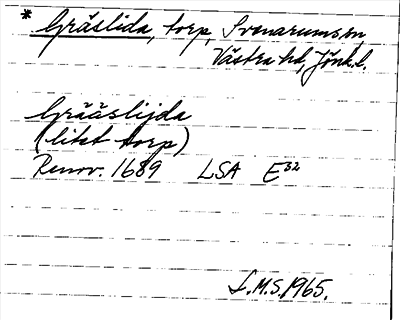 * Gräslida, torp, Svenarums sn
Västra hd, Jönk.l.
Grääslijda
(litet torp)
Renov. 1689 LSA E³²
L.M.S. 1965.